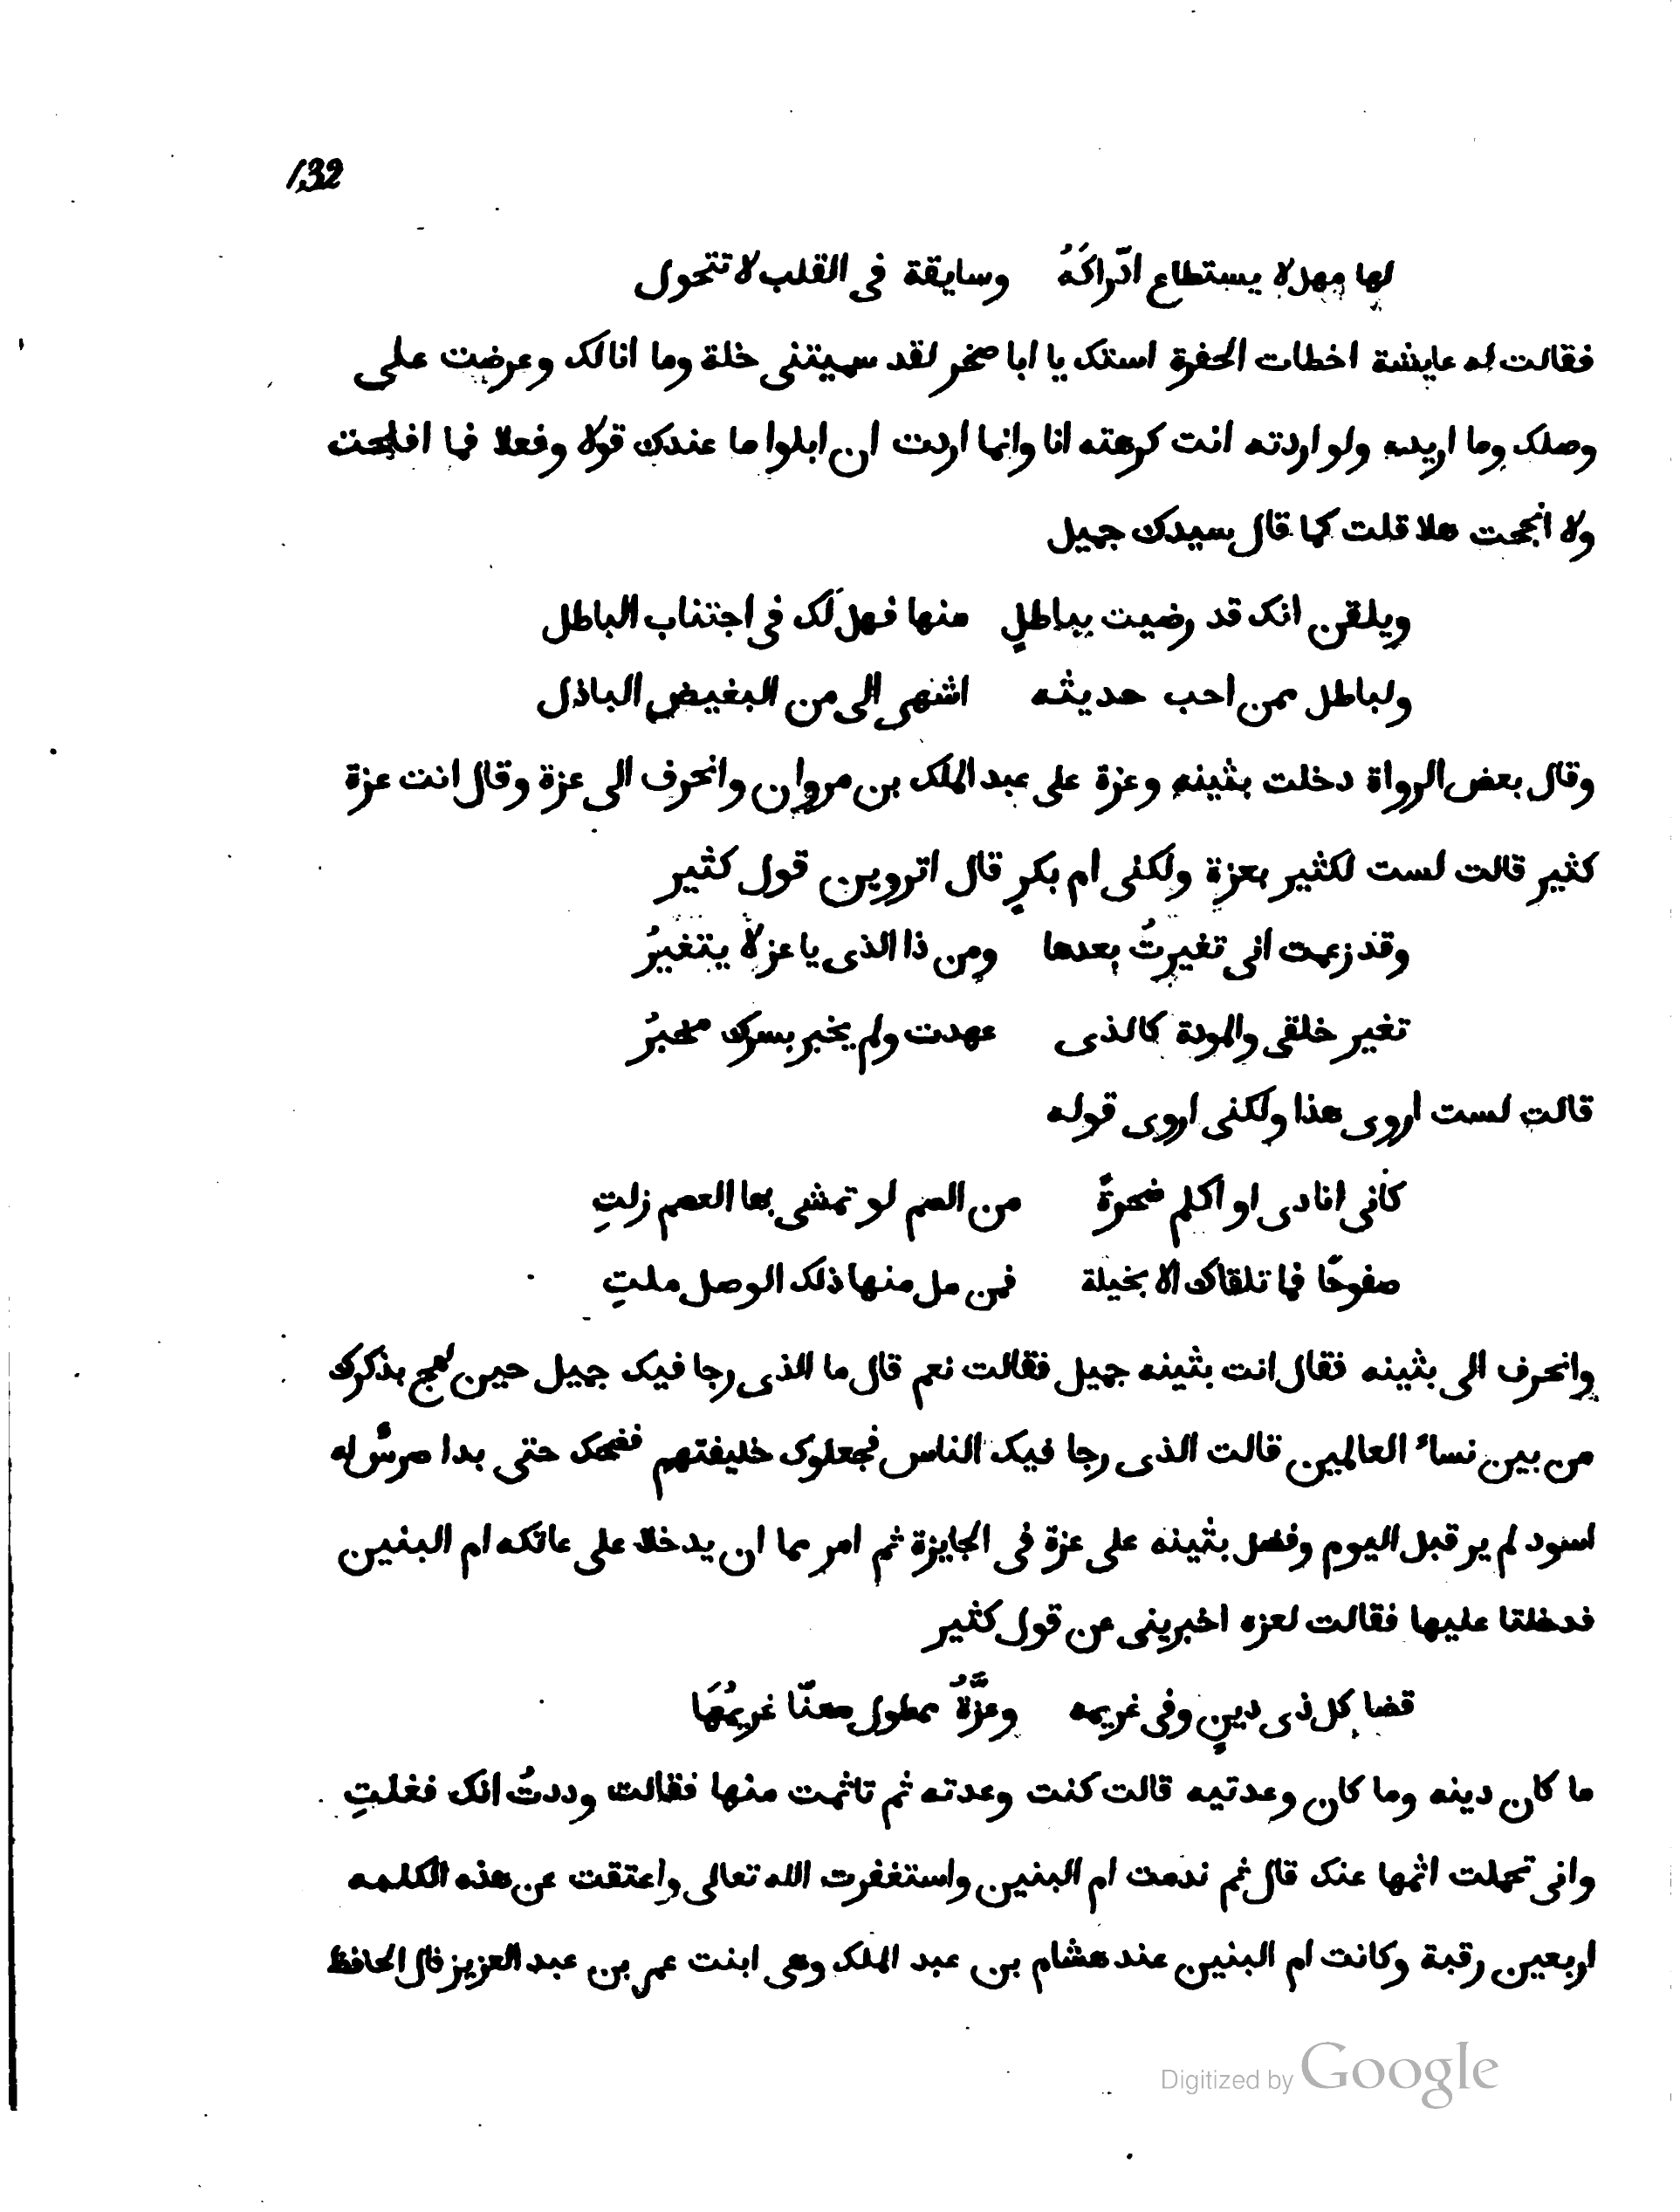 132
لها مهل لا يستطاع ادّراكَهُ وسايقة فى القلب لا تتحول
فقالت له عايشة اخطات الحفرة استك يا ابا صخر لقد سميتنى خلة وما انا لك وعرضت على
وصلك وما اريده ولو اردته انت كرهته انا وانما اردت ان ابلوا ما عندك قولا وفعلا فما افلحت
ولا انجحت هلا قلت كما قال سيدك جميل
ويلقن انك قد رضيت بباطلٍ منها فهل لَك فى اجتناب الباطل
ولباطل ممن احب حديثه اشهى الى من البغيض الباذل
وقال بعض الرواة دخلت بثينه وعزة على عبد الملك بن مروان وانحرف الى عزة وقال انت عزة
كثير قالت لست لكثير بعزة ولكنى ام بكرٍ قال اتروين قول كثير
وقد زعمت انى تغيرتُ بعدها ومن ذا الذى يا عز لا يتغيرُ
تغير خلقى والمودة كالذى عهدت ولم يخبر بسرك مخبرُ
قالت لست اروى هذا ولكنى اروى قوله
كأنى انادى او اكلم صخرةً من الصم لو تمشى بها العصم زلتِ
صفوحًا فما تلقاك الا بخيلة فمن مل منها ذلك الوصل ملتِ
وانحرف الى بثينه فقال انت بثينه جميل فقالت نعم قال ما الذى رجا فيك جميل حين لهج بذكرك
من بين نساء العالمين قالت الذى رجا فيك الناس فجعلوك خليفتهم فضحك حتى بدا ضرسٌ له
اسود لم ير قبل اليوم وفضل بثينه على عزة فى الجايزة ثم امر بهما ان يدخلا على عاتكه ام البنين
فدخلتا عليها فقالت لعزه اخبرينى عن قول كثير
قضا كل ذى دينٍ وفى غريمه وعزَّةُ ممطول معنّا غريمُهَا
ما كان دينه وما كان وعدتيه قالت كنت وعدته ثم تاثمت منها فقالت وددتُ انك فعلتِ
وانى تحملت اثمها عنك قال ثم ندمت ام البنين واستغفرت الله تعالى واعتقت عن هذه الكلمه
اربعين رقبة وكانت ام البنين عند هشام بن عبد الملك وهى ابنت عمر بن عبد العزيز قال الحافظ
Digitized by Google